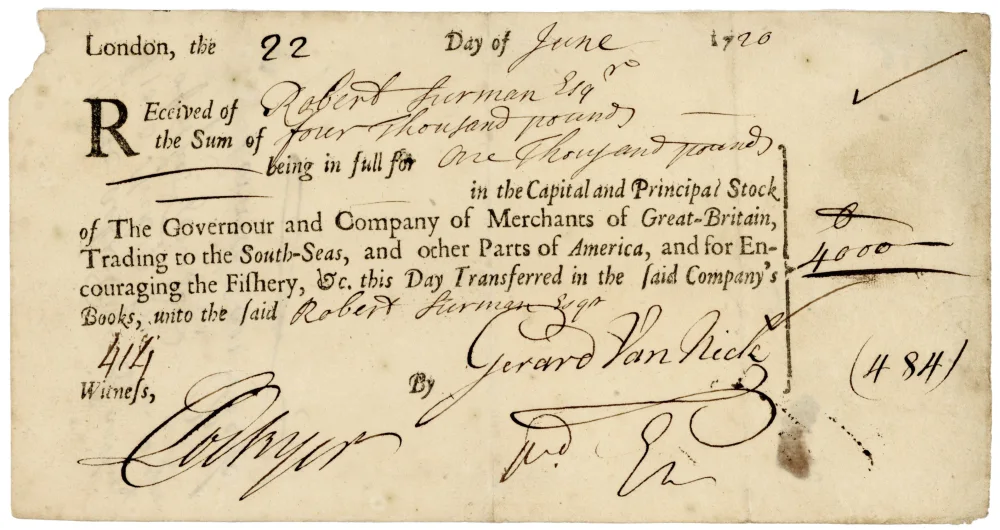 London, the 22 Day of June 1720
REceived of Robert Surman Esqr
the Sum of four Thousand pounds
being in full for One Thousand pounds
in the Capital and Principal Stock
of The Governour and Company of Merchants of Great-Britain,
Trading to the South-Seas, and other Parts of America, and for En-
couraging the Fiſhery, &c. this Day Transferred in the ſaid Company's
Books, unto the ſaid Robert Surman Esqr
4000
414
Witneſs, By Gerard Van Neck
(484)